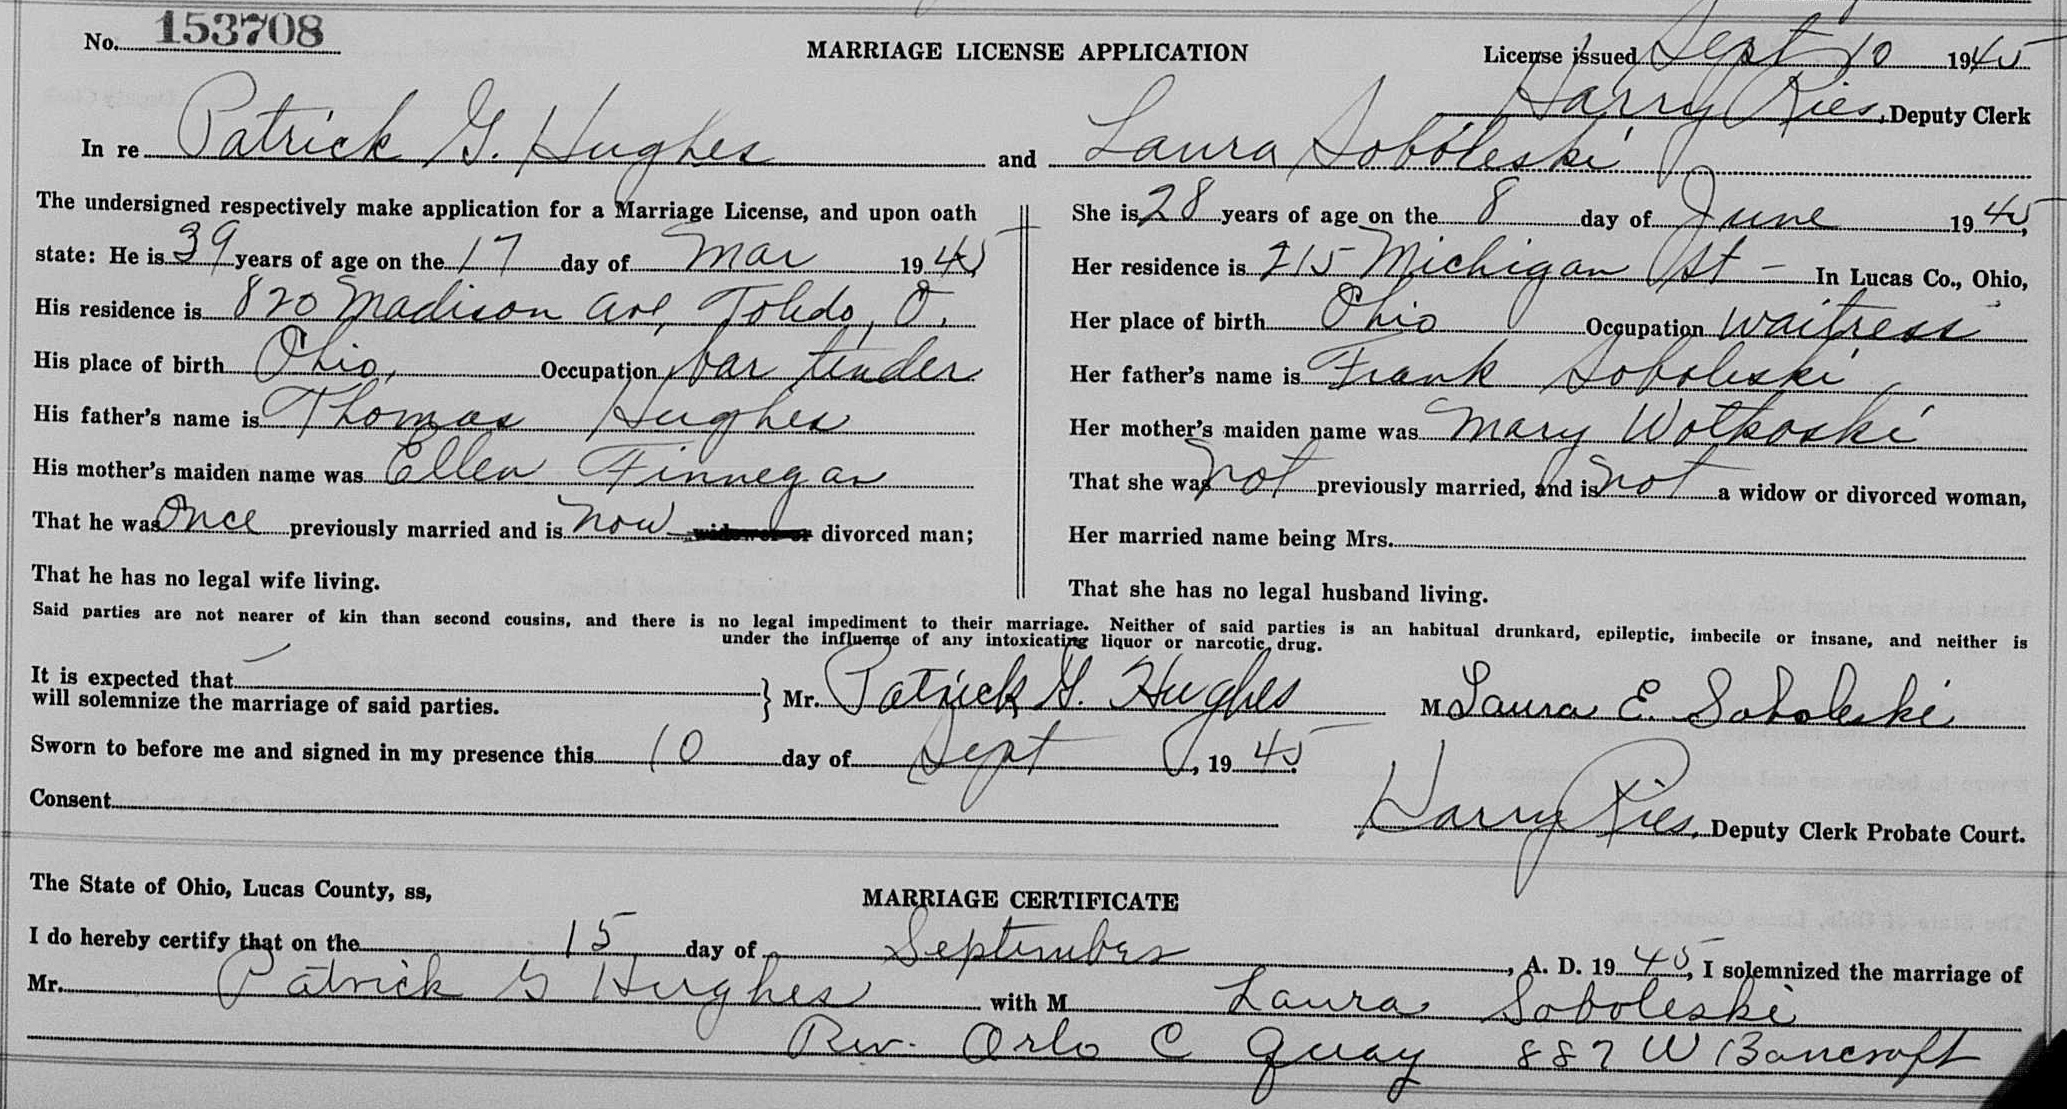 No. 153708
MARRIAGE LICENSE APPLICATION
License issued Sept 10 1945
Harry Ries, Deputy Clerk
In re Patrick G. Hughes and Laura Soboleski
The undersigned respectively make application for a Marriage License, and upon oath
state: He is 39 years of age on the 17 day of Mar 1945
His residence is 820 Madison Ave, Toledo, O.
His place of birth Ohio, Occupation bar tender
His father's name is Thomas Hughes
His mother's maiden name was Ellen Finnegan
That he was once previously married and is now widower or divorced man;
That he has no legal wife living.
She is 28 years of age on the 8 day of June 1945,
Her residence is 215 Michigan St - In Lucas Co., Ohio,
Her place of birth Ohio Occupation waitress
Her father's name is Frank Soboleski
Her mother's maiden name was Mary Wotkoski
That she was not previously married, and is not a widow or divorced woman,
Her married name being Mrs.
That she has no legal husband living.
Said parties are not nearer of kin than second cousins, and there is no legal impediment to their marriage. Neither of said parties is an habitual drunkard, epileptic, imbecile or insane, and neither is
under the influence of any intoxicating liquor or narcotic drug.
It is expected that
will solemnize the marriage of said parties.
Mr. Patrick G. Hughes M Laura E. Soboleski
Sworn to before me and signed in my presence this 10 day of Sept, 1945.
Consent
Harry Ries, Deputy Clerk Probate Court.
The State of Ohio, Lucas County, ss,
MARRIAGE CERTIFICATE
I do hereby certify that on the 15 day of September, A. D. 1945, I solemnized the marriage of
Mr. Patrick G Hughes with M Laura Soboleski
Rev. Orlo C Quay 887 W Bancroft